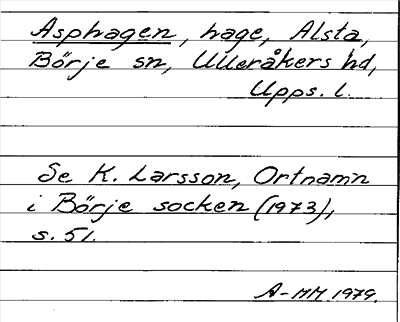 Asphagen, hage, Alsta,
Börje sn, Ulleråkers hd,
Upps. l.
Se K. Larsson, Ortnamn
i Börje socken (1973),
s. 51.
A-MM 1979.